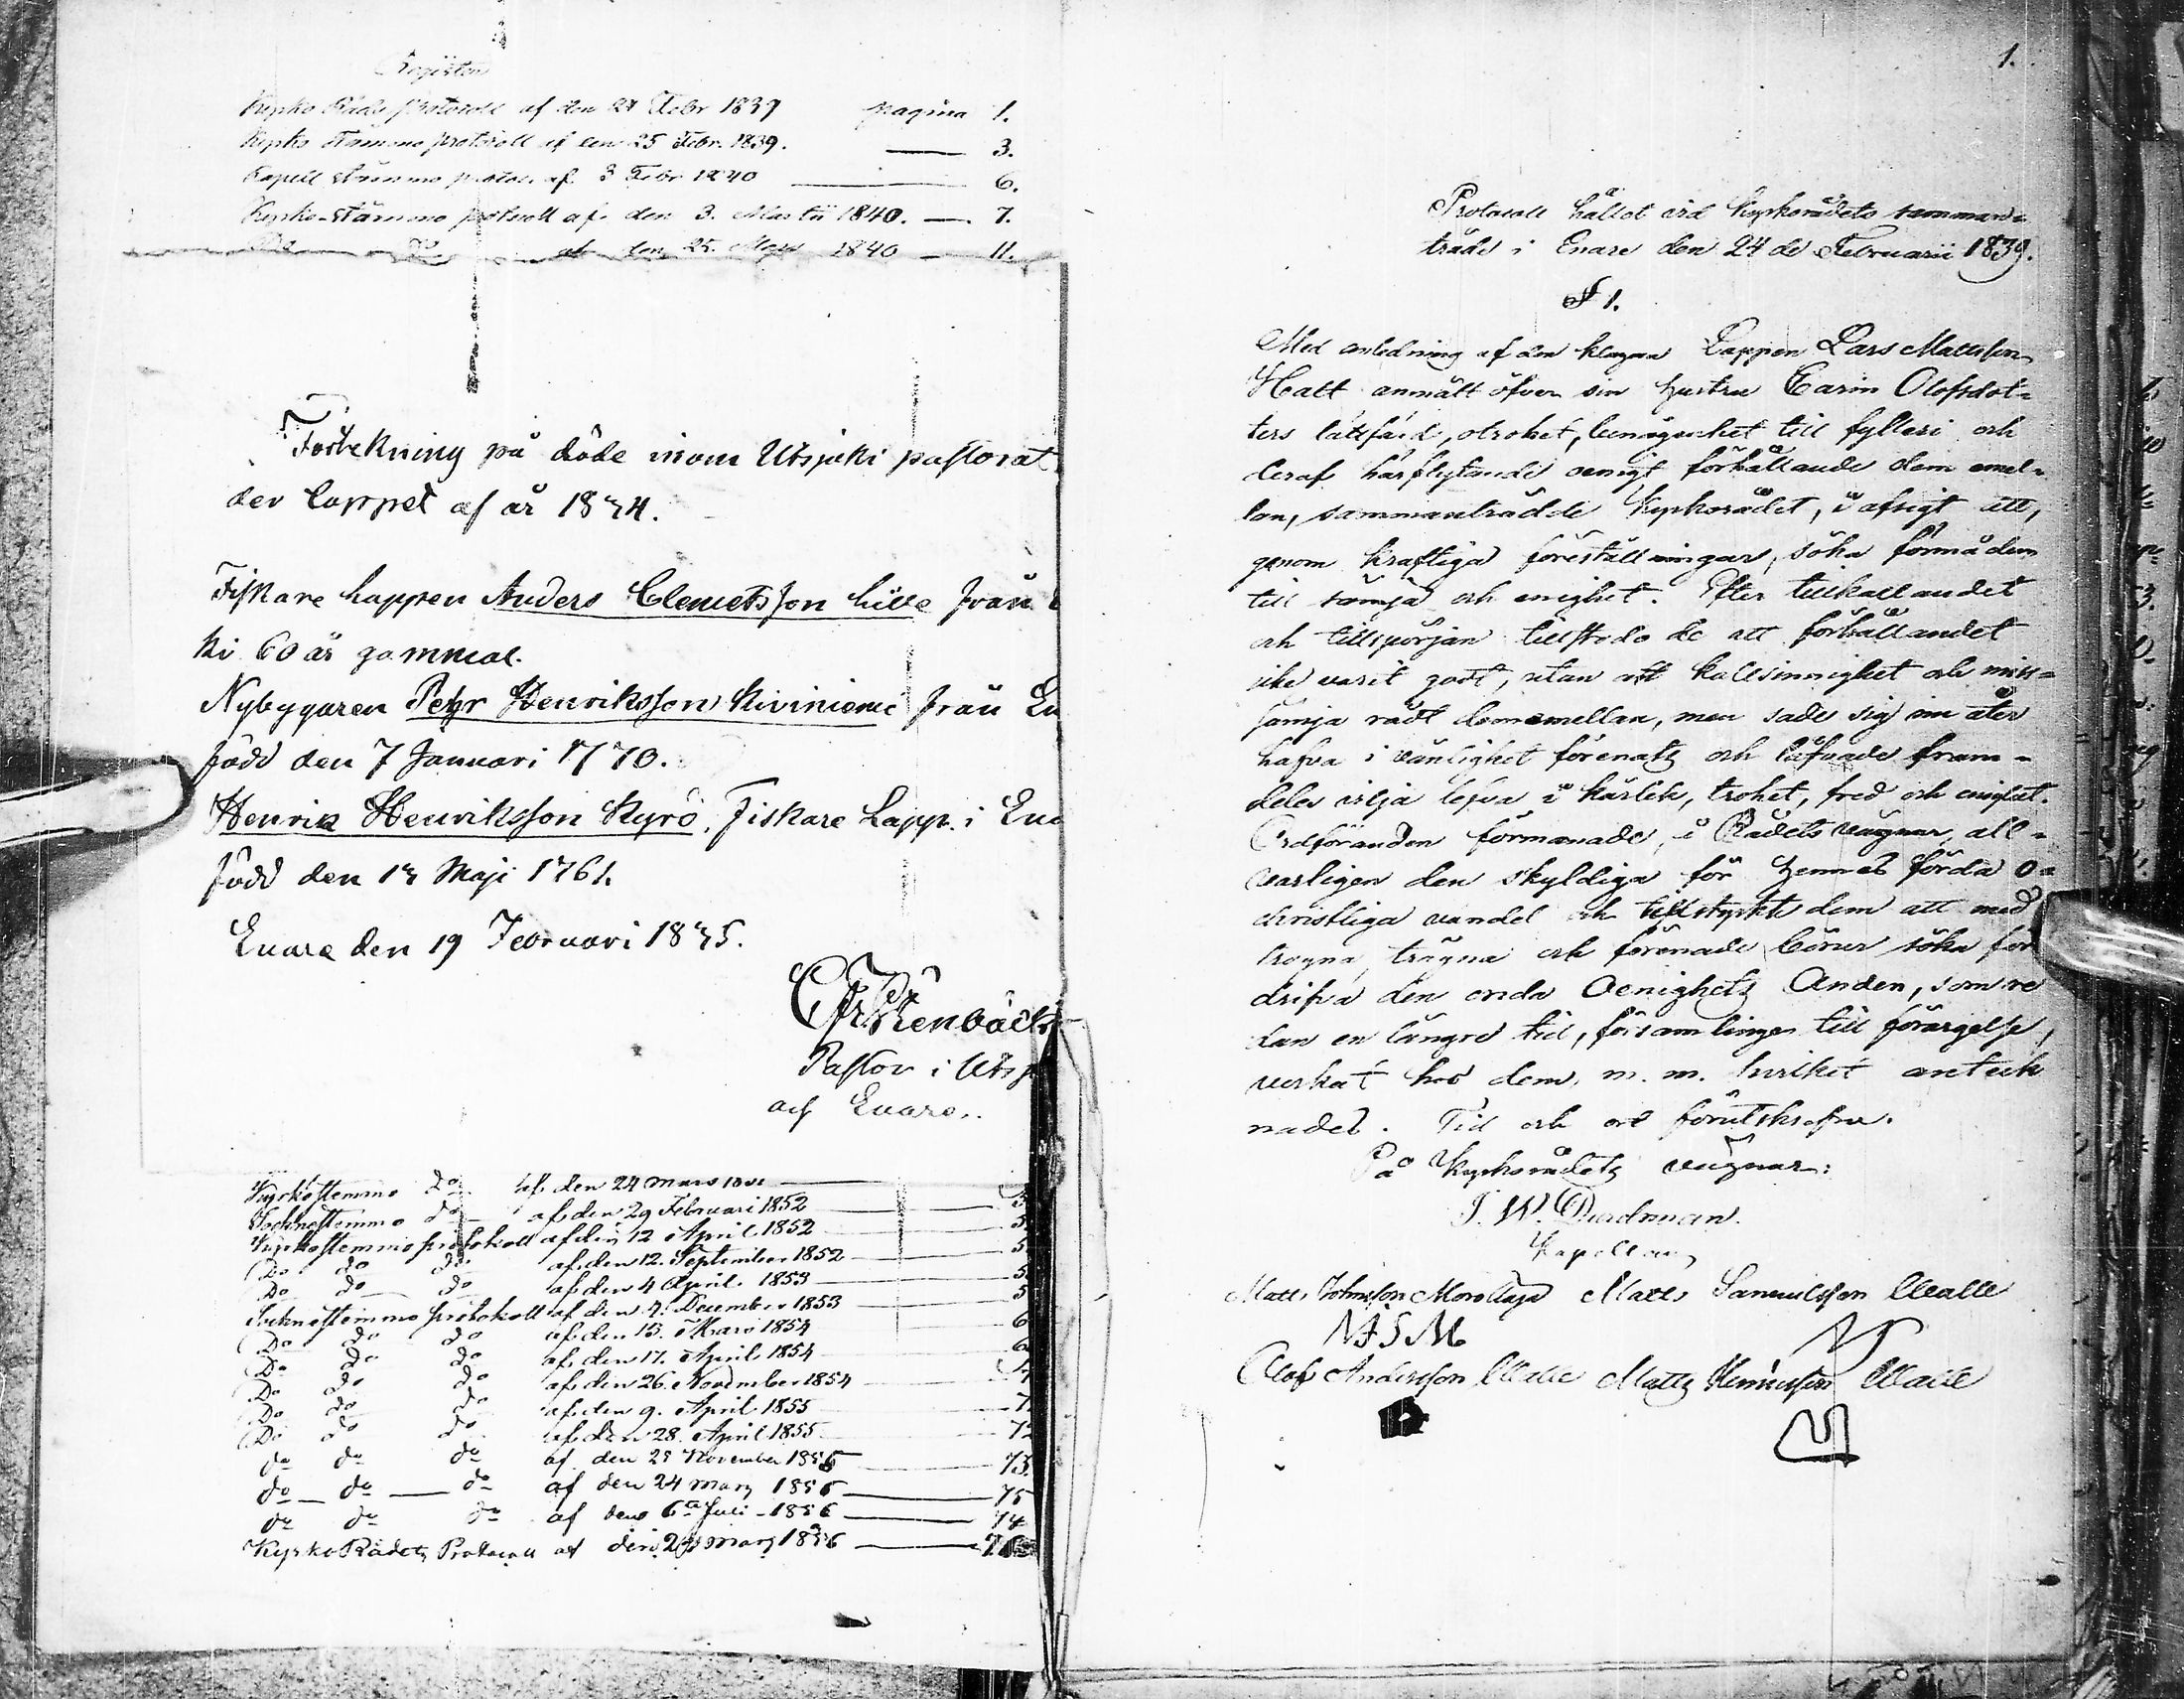 Register
Kyrko Råds protocoll af den 24 Febr 1839 pagina 1.
Kyrko stämmo protocoll af den 25 Febr. 1839. — 3.
Kapell stämmo protoc. af 3 Febr 1840 — 6.
Kyrko-stämmo protocoll af den 3. Martii 1840. — 7.
Do Do af den 25. Maji 1840 — 11.
Förtekning på döde inom Utsjoki pastorat
der loppet af år 1834.
Fiskare lappen Anders Clemetsson från
ki 60 år gammal.
Nybyggaren Pehr Henriksson Kiviniemi från En
född den 7 Januari 1770.
Henrik Henriksson Kyrö, Fiskare Lapp. i Ena
född den 13 Maji 1761.
Enare den 19 Februari 1835.
Pastor i Utsj
och Enare.
Kyrkostemmo do af den 24 mars
Socknestemmo do af den 29 Februari 1852 5
Kyrkostemmo protokoll af den 12 April 1852 5
Do do do af den 12. September 1852 5
Do do do af den 4 April 1853 5
Socknestemmo protokoll af den 4. December 1853 6
Do do do af den 13. Mars 1854 6
Do do do af den 17. April 1854
Do do do af den 26. November 1854 7
Do do do af den 9. April 1855 7
Do do do af den 28. April 1855 72
do do do af den 25 November 1855 73
do — do — do af den 24 mars 1856 75
do do do af den 6te Juli 1856 74
Kyrko Rådets Protocoll af den 24 mars 1856 76
1.
Protocoll hållet vid Kyrkorådets samman-
träde i Enare den 24 de Februarii 1839.
§ 1.
Med anledning af den klagan Lappen Lars Mattsson
Hatt anmält öfver sin hustru Carin Olofsdot-
ters lättfärd, otrohet, benägenhet till fylleri och
deraf härflytande oenigt förhållande dem emel-
lan, sammanträdde Kyrkorådet, i afsigt att,
genom kraftiga föreställningar, söka förmå dem
till sämja och enighet. Efter tillkallandet
och tillspörjan tillstodo de att förhållandet
icke varit godt, utan att kallsinnighet och miss-
sämja rådt dememellan, men sade sig nu åter
hafva i vänlighet förenats och låfvade fram-
deles vilja lefva i kärlek, trohet, fred och enighet.
Ordföranden förmanade, i Rådets vägnar, all-
varligen den skyldiga för hennes förda o-
christliga vandel och tillstyrkte dem att med
trogna, trägna och förenade böner söka för
drifva den onda Oenighets Anden, som re
dan en längre tid, församlingen till förargelse,
verkat hos dem, m. m. hvilket anteck
nades. Tid och ort förutskrefne.
På Kyrkorådets vägnar:
J. W. Durchman.
Kapellan
Matts Johansson Morottaja Matts Samuelsson Walle
M J S M
Olof Andersson Walle Matts Henriksson Walle